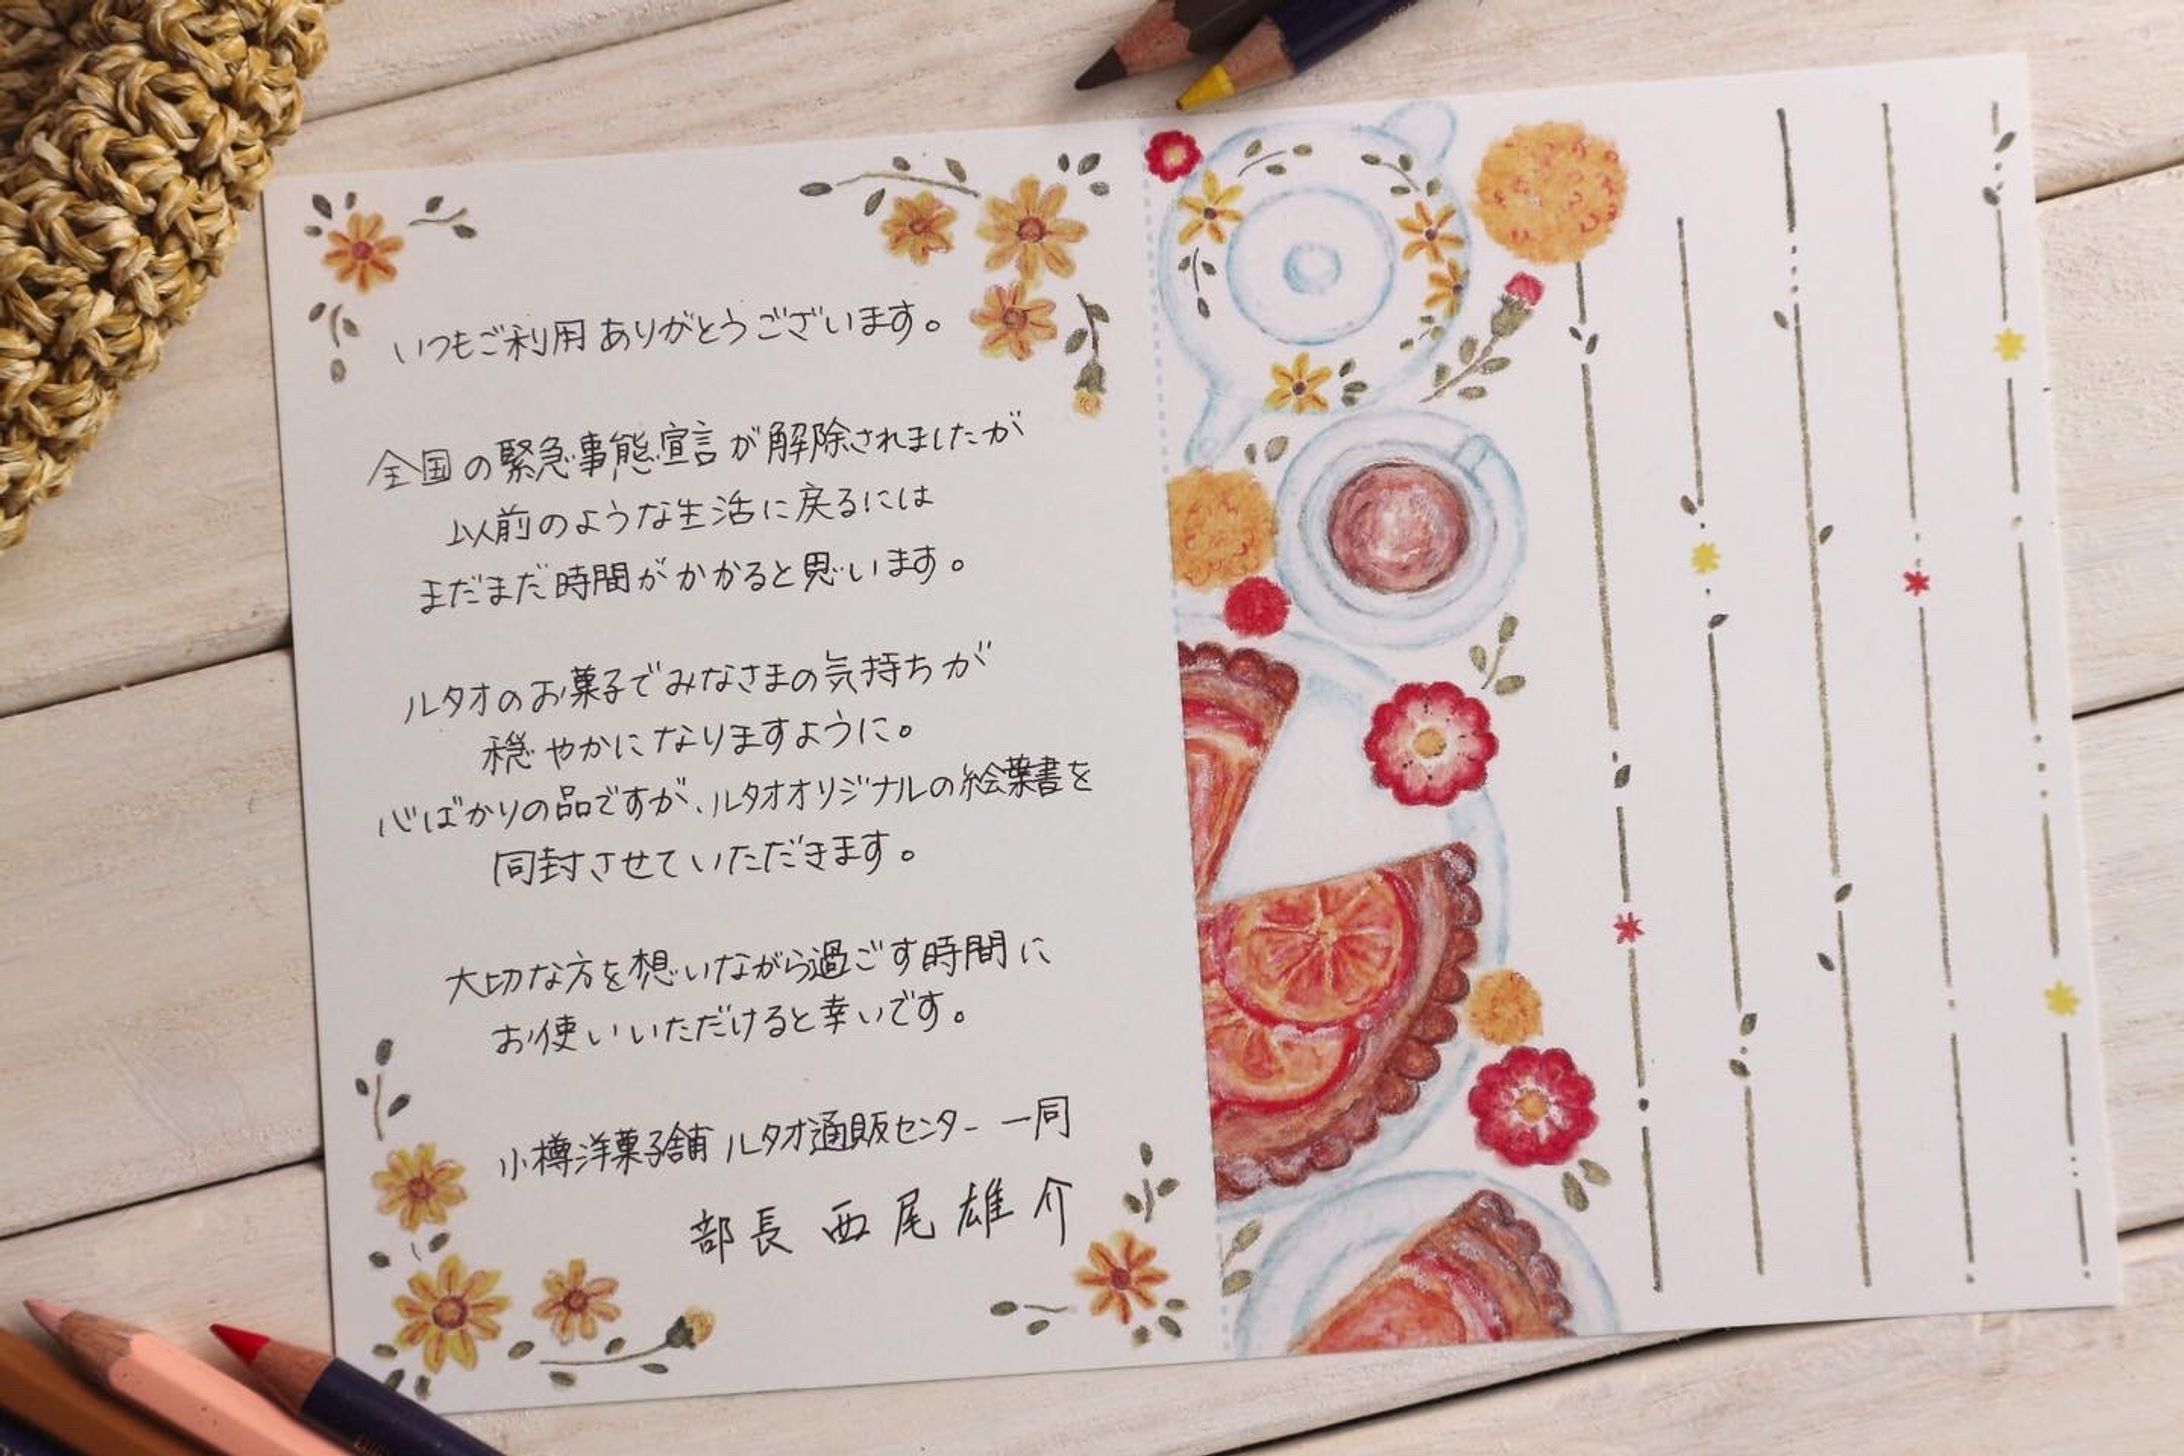 いつもご利用ありがとうございます。
全国の緊急事態宣言が解除されましたが
以前のような生活に戻るには
まだまだ時間がかかると思います。
ルタオのお菓子でみなさまの気持ちが
穏やかになりますように。
心ばかりの品ですが、ルタオオリジナルの絵葉書を
同封させていただきます。
大切な方を想いながら過ごす時間に
お使いいただけると幸いです。
小樽洋菓子舗 ルタオ通販センター 一同
部長 西尾雄介